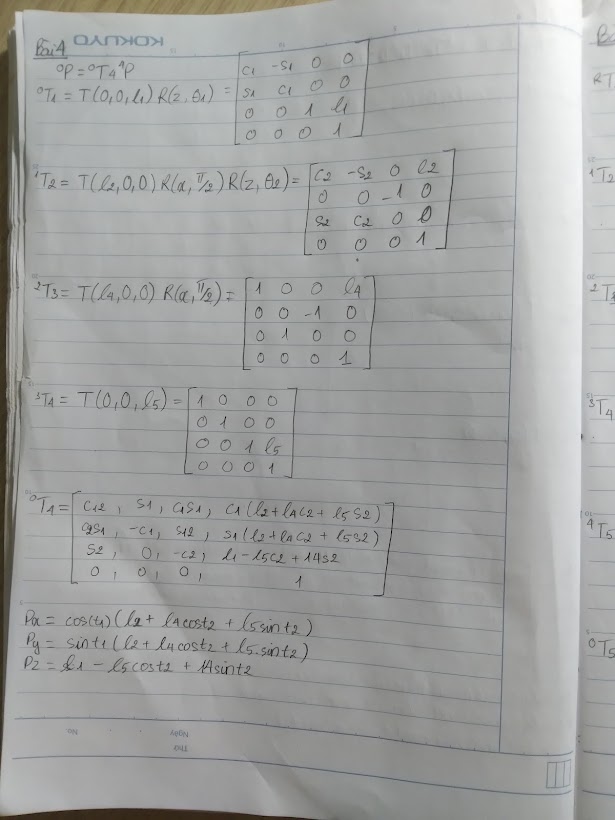 KOKUYO
Bài 4
⁰P = ⁰T₄ ⁴P
⁰T₁ = T(0,0,l₁) R(z, θ₁) = [C₁ -S₁ 0 0
S₁ C₁ 0 0
0 0 1 l₁
0 0 0 1]
¹T₂ = T(l₂,0,0) R(x, π/2) R(z, θ₂) = [C₂ -S₂ 0 l₂
0 0 -1 0
S₂ C₂ 0 0
0 0 0 1]
²T₃ = T(l₄,0,0) R(x, π/2) = [1 0 0 l₄
0 0 -1 0
0 1 0 0
0 0 0 1]
³T₄ = T(0,0,l₅) = [1 0 0 0
0 1 0 0
0 0 1 l₅
0 0 0 1]
⁰T₄ = [C₁₂ , S₁ , C₁S₁ , C₁(l₂ + l₄C₂ + l₅S₂)
C₂S₁ , -C₁ , S₁₂ , S₁(l₂ + l₄C₂ + l₅S₂)
S₂ , 0 , -C₂ , l₁ - l₅C₂ + l4S₂
0 , 0 , 0 , 1]
Px = cos(t₁)(l₂ + l₄cost₂ + l₅sint₂)
Py = sint₁(l₂ + l₄cost₂ + l₅.sint₂)
Pz = l1 - l₅cost₂ + l4sint₂
No.
Thứ
Ngày
¹T₂
³T₄
⁴T₅
⁰T₅